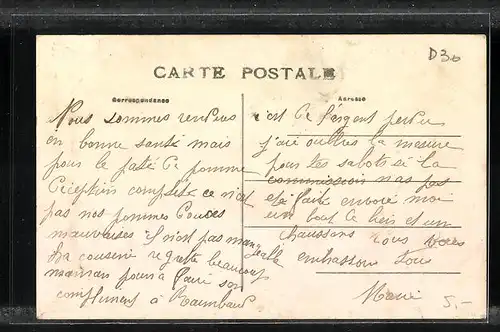 D30
CARTE POSTALE
Correspondance
Adresse
Nous sommes rendues
en bonne santé mais
pour le paté de pomme
Déception complète ce n'est
pas nos pommes Douces
mauvaises il n'est pas mangeable
La cousine regrette beaucoup
maman pourra faire son
compliment à Raimbaud
c'est de l'argent perdu
j'ai oublié la mesure
pour les sabots si la
commission n'as pas
été faite envoie moi
un bout de bois et un
chausson vous
embrassons Tous
Marie
5.-